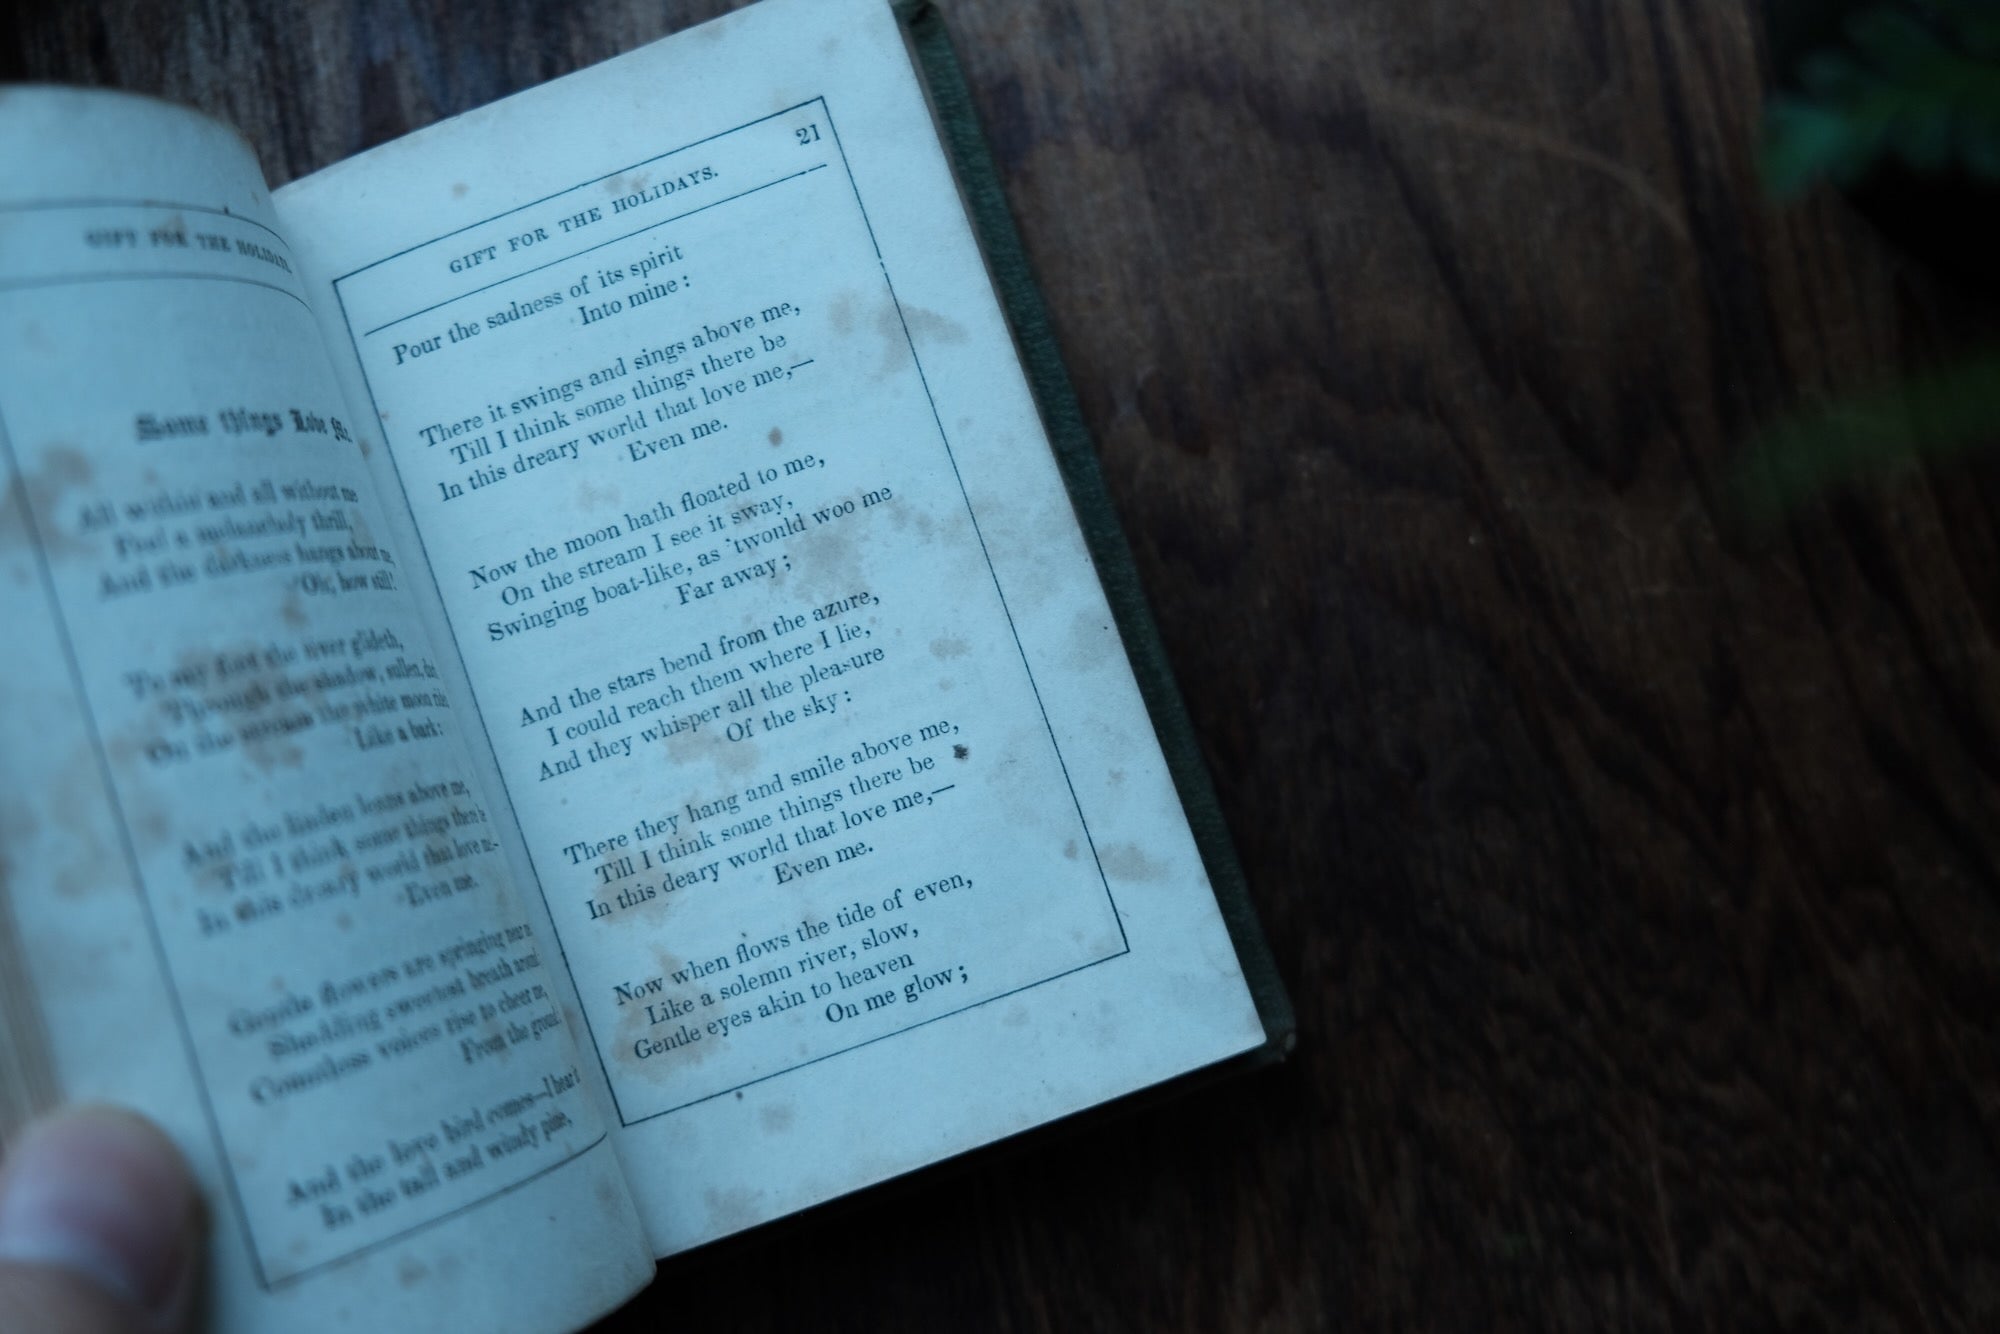 GIFT FOR THE HOLIDAYS.
Some things Love Me.
All within and all without me
Feel a melancholy thrill,
And the darkness hangs about me,
Oh, how still!
To my feet the river glideth,
Through the shadow, sullen,
On the stream the white moon
Like a bark:
And the linden leans above me,
Till I think some things there be
In this dreary world that love me—
Even me.
Gentle flowers are springing near
Shedding sweetest breath around
Countless voices rise to cheer me,
From the ground
And the love bird comes—I hear it
In the tall and windy pine,
21
GIFT FOR THE HOLIDAYS.
Pour the sadness of its spirit
Into mine:
There it swings and sings above me,
Till I think some things there be
In this dreary world that love me,—
Even me.
Now the moon hath floated to me,
On the stream I see it sway,
Swinging boat-like, as 'twonld woo me
Far away;
And the stars bend from the azure,
I could reach them where I lie,
And they whisper all the pleasure
Of the sky:
There they hang and smile above me,
Till I think some things there be
In this deary world that love me,—
Even me.
Now when flows the tide of even,
Like a solemn river, slow,
Gentle eyes akin to heaven
On me glow;